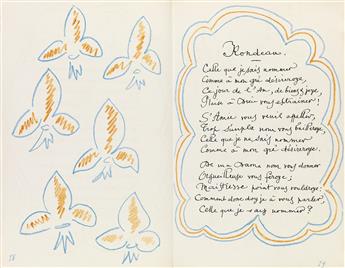 Rondeau.
Celle que je sais nommer
Comme à mon gré désireroye,
Ce jour de l'An, de biens & joye,
Plaise à Dieu vous estrainer!
S'Amie vous veuil apeller,
Trop simple nom vous bailleroye,
Celle que je ne sais nommer
Comme à mon gré désireroye.
De ma Dame nom vous donner
Orgueilleuse vous feroye;
Maistresse point vous vouldroye;
Comment donc doy je à vous parler,
Celle que je sais nommer?
58
59